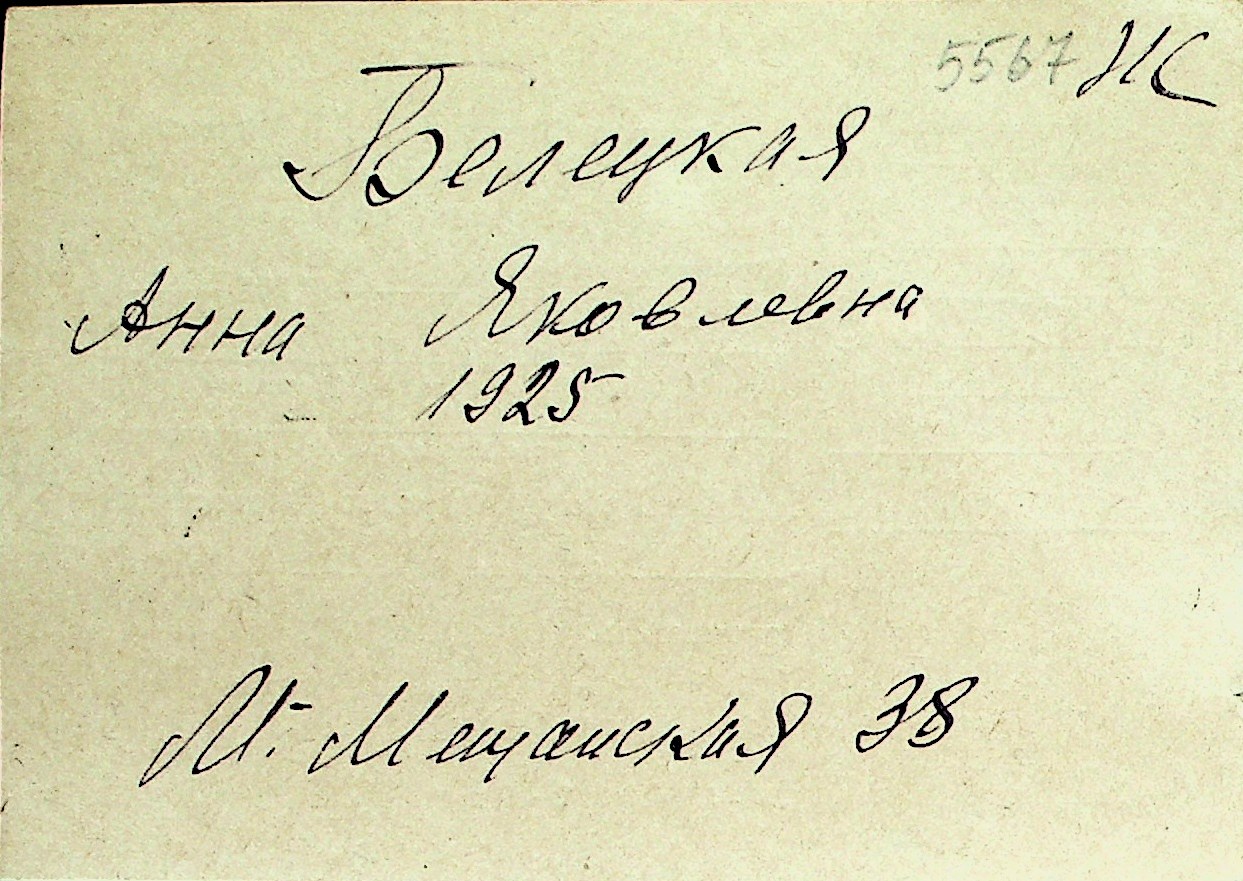 5567 ИС
Белецкая
Анна Яковлевна
1925
М. Мещанская 38